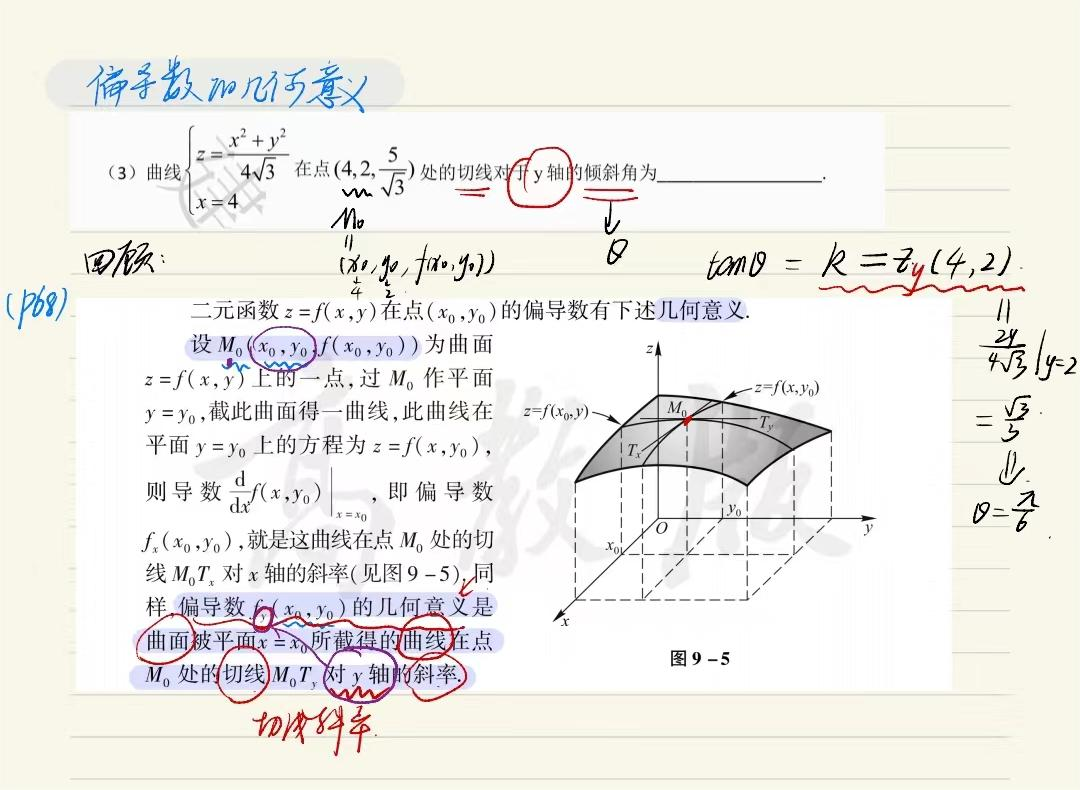 偏导数的几何意义
(3) 曲线{z = (x² + y²)/(4√3), x = 4 在点(4, 2, 5/√3)处的切线对于y轴的倾斜角为________.
M₀
||
(x₀, y₀, f(x₀,y₀))
4 2
θ
回顾:
tanθ = k = z_y(4,2)
||
2y/(4√3)|y=2
= √3/3
⇓
θ = π/6
(P68)
二元函数 z=f(x,y)在点(x₀,y₀)的偏导数有下述几何意义.
设 M₀(x₀,y₀,f(x₀,y₀))为曲面
z=f(x,y)上的一点,过 M₀ 作平面
y=y₀,截此曲面得一曲线,此曲线在
平面 y=y₀ 上的方程为 z=f(x,y₀),
则导数 d/dx f(x,y₀)|x=x₀ ,即偏导数
fₓ(x₀,y₀),就是这曲线在点 M₀ 处的切
线 M₀Tₓ 对 x 轴的斜率(见图 9-5).同
样,偏导数 f_y(x₀,y₀)的几何意义是
曲面被平面 x=x₀ 所截得的曲线在点
M₀ 处的切线 M₀T_y 对 y 轴的斜率.
切线斜率.
z
z=f(x,y₀)
z=f(x₀,y)
M₀
T_y
Tₓ
y₀
O
y
x₀
x
图 9-5
高教版